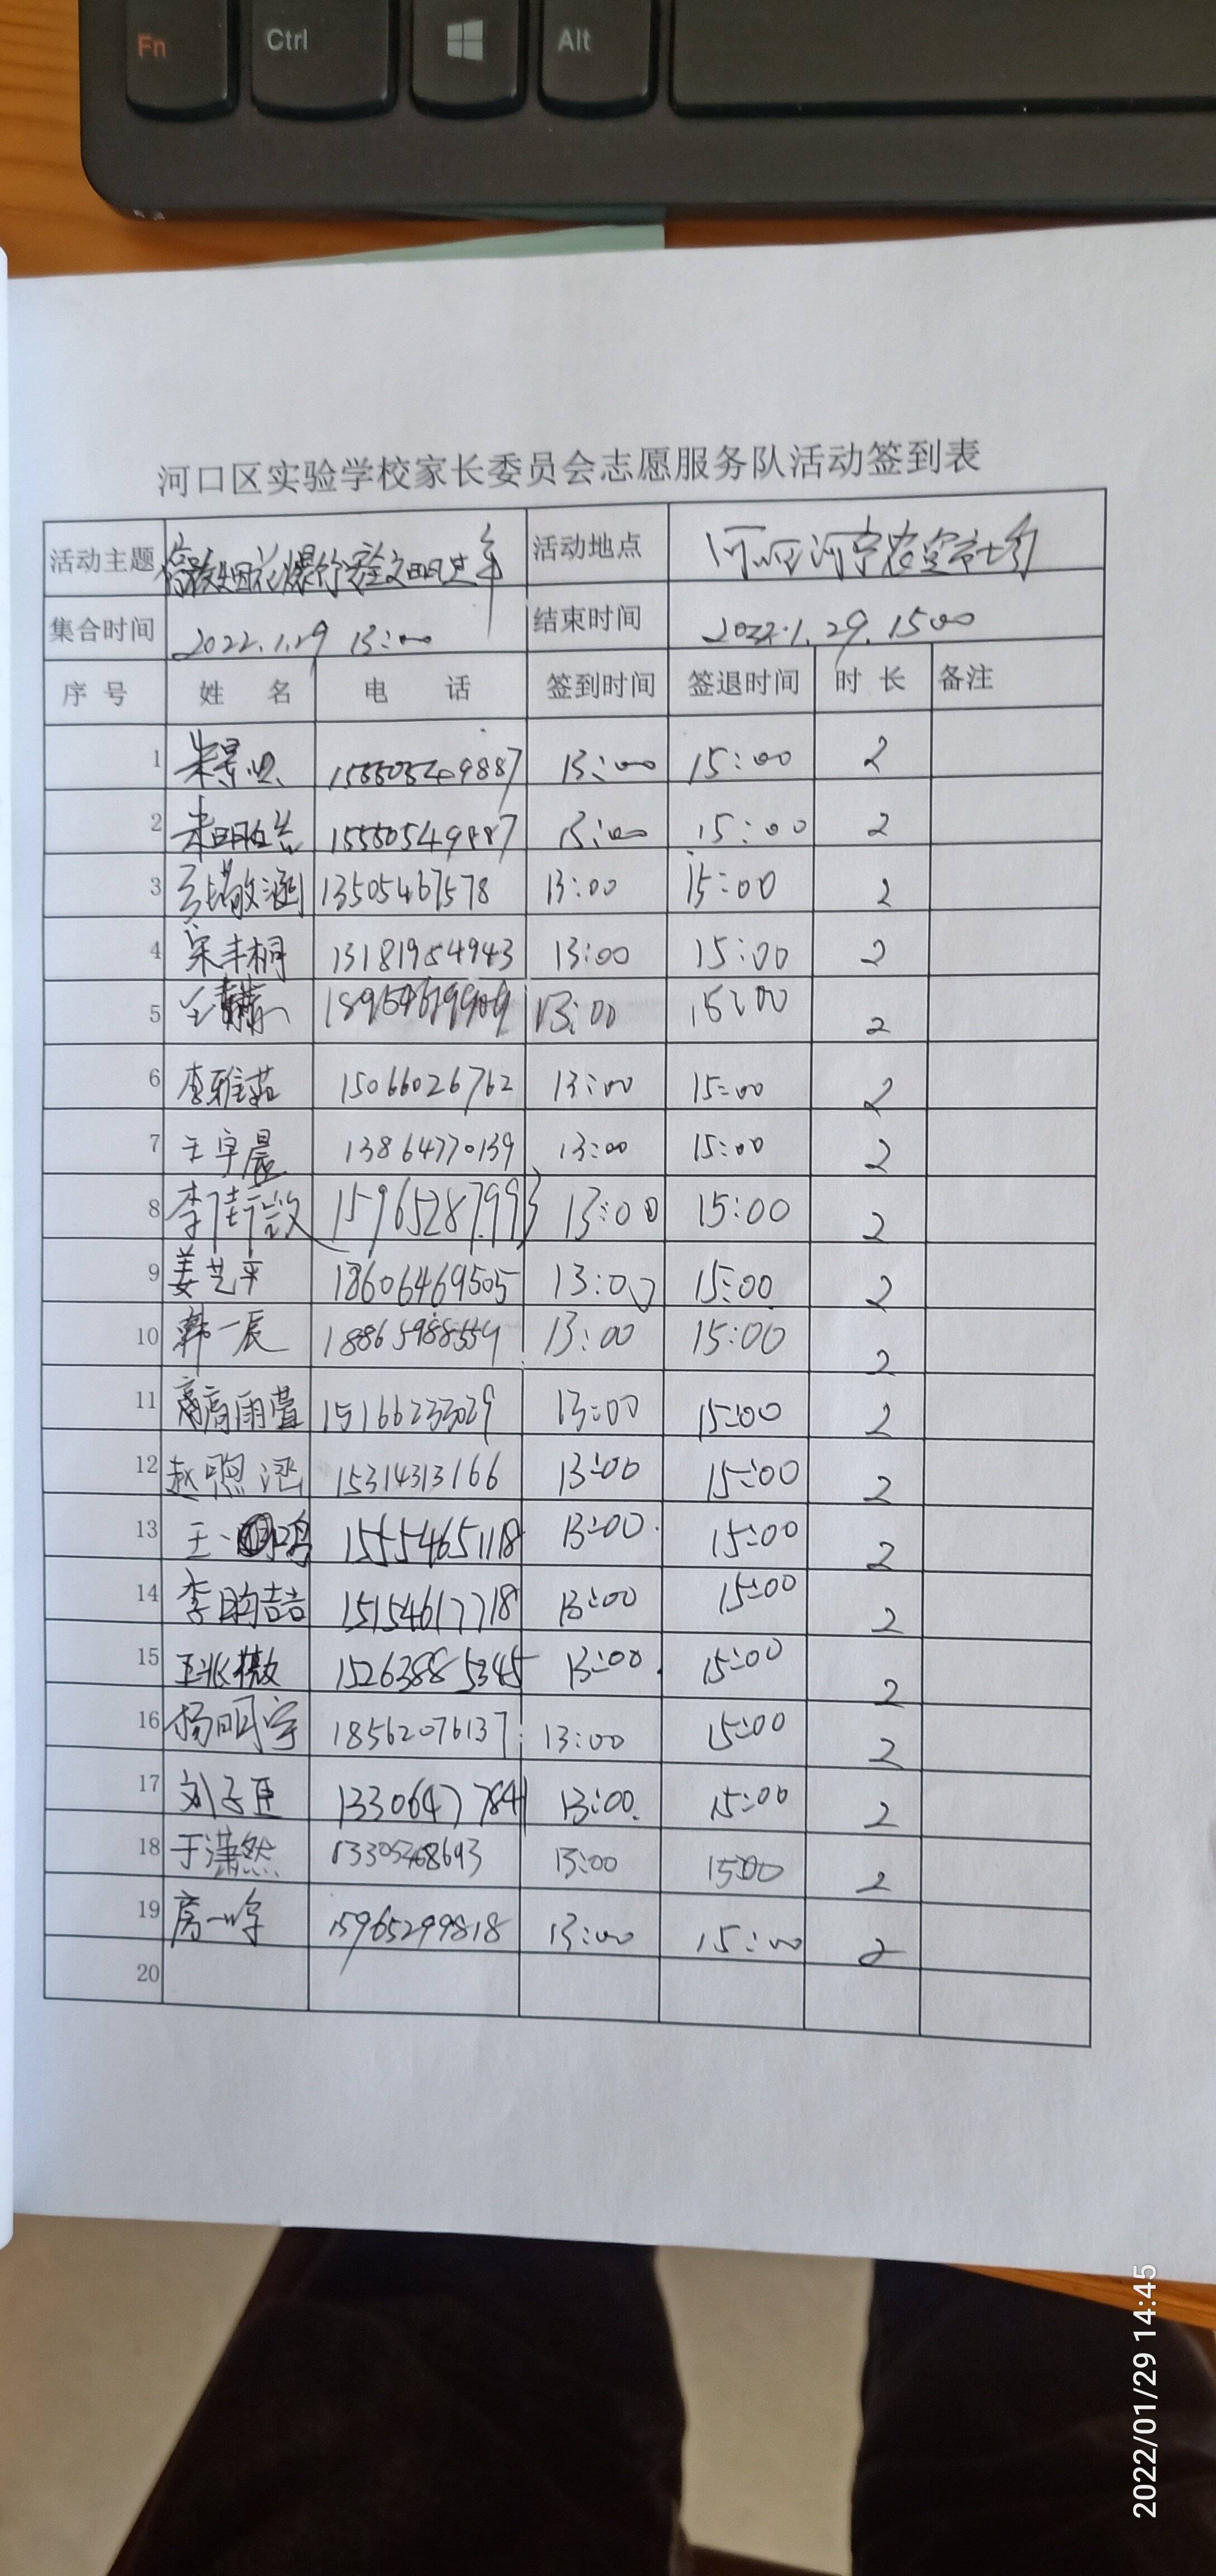 Fn Ctrl Alt
河口区实验学校家长委员会志愿服务队活动签到表
活动主题 烟花爆竹安全文明过年 活动地点
集合时间 2022.1.29 13:00 结束时间 2022.1.29.15:00
序号 姓名 电话 签到时间 签退时间 时长 备注
1 13:00 15:00 2
2 15550549887 13:00 15:00 2
3 13505467578 13:00 15:00 2
4 宋丰桐 13181954943 13:00 15:00 2
5 13:00 15:00 2
6 李雅茹 15066026762 13:00 15:00 2
7 王宇晨 13864770139 13:00 15:00 2
8 李佳 15965287993 13:00 15:00 2
9 姜艺平 18606469505 13:00 15:00 2
10 韩一辰 18865988559 13:00 15:00 2
11 雨萱 15166233029 13:00 15:00 2
12 赵 15314313166 13:00 15:00 2
13 王一鸣 15554651118 13:00 15:00 2
14 李昀喆 15154617718 13:00 15:00 2
15 王兆薇 15263885345 13:00 15:00 2
16 杨明宇 18562076137 13:00 15:00 2
17 刘子臣 13306477841 13:00 15:00 2
18 于潇然 13305468693 13:00 15:00 2
19 高一 15965299818 13:00 15:00 2
20
2022/01/29 14:45